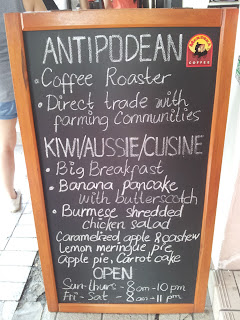 ANTIPODEAN
COFFEE
• Coffee Roaster
• Direct trade with
farming Communities
KIWI/AUSSIE/CUISINE
• Big Breakfast
• Banana pancake
with butterscotch
• Burmese shredded
chicken salad
Caramelized apple & cashew
Lemon meringue pie,
apple pie, Carrot cake
OPEN
Sun-thurs - 8am-10pm
Fri - Sat - 8am-11pm